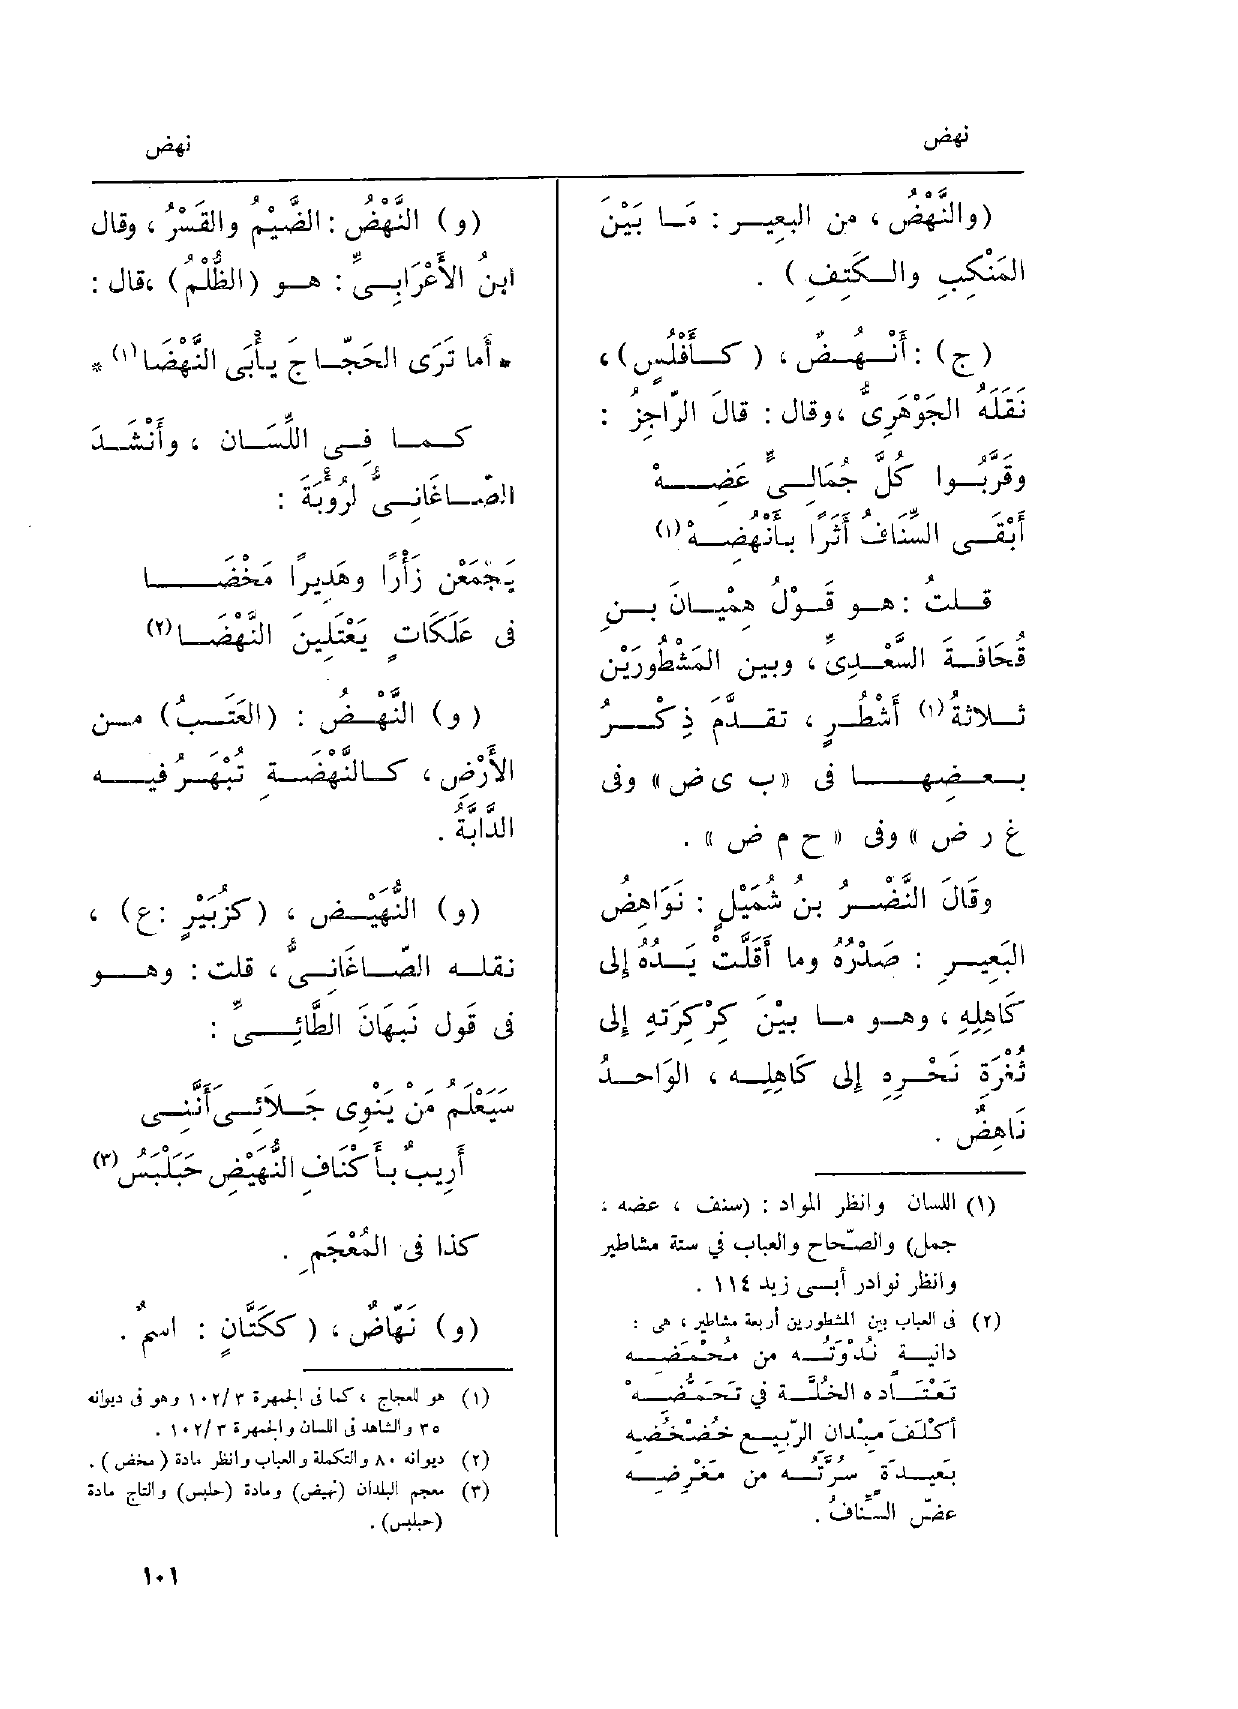 نهض
نهض
(والنَّهْضُ ، من البعير : مَا بَيْنَ
المَنْكِبِ والكَتِفِ ) .
(ج) : أَنْهُضٌ ، ( كأَفْلُسٍ) ،
نَقَلَهُ الجَوْهَرِىُّ ، وقال : قالَ الرّاجِزُ :
وقَرَّبُوا كُلَّ جُمَالِىٍّ عَضِهْ
أَبْقَى السِّنَافُ أَثَرًا بأَنْهُضِهْ (١)
قلتُ : هو قَوْلُ هِمْيَانَ بنِ
قُحَافَةَ السَّعْدِىِّ ، وبين المَشْطُورَيْن
ثلاثةُ (١) أَشْطُرٍ ، تقدَّمَ ذِكْرُ
بعضِهَا فى «ب ى ض» وفى
غ ر ض » وفى « ح م ض » .
وقَالَ النَّضْرُ بنُ شُمَيْلٍ : نَوَاهِضُ
البَعِيرِ : صَدْرُهُ وما أَقَلَّتْ يَدُهُ إلى
كَاهِلِهِ ، وهو ما بيْنَ كِرْكِرَتِهِ إلى
ثُغْرَةِ نَحْرِهِ إلى كَاهِلِه ، الوَاحدُ
نَاهِضٌ .
(١) اللسان وانظر المواد : (سنف ، عضه ،
جمل) والصّحاح والعباب في ستة مشاطير
وانظر نوادر أبى زيد ١١٤ .
(٢) فى العباب بين المشطورين أربعة مشاطير ، هى :
دانية نُدْوَتُه من مُحْمَضِه
تَعْتَاده الخُلَّة في تَحَمُّضِهْ
أكْلَفَ مِبْدانِ الرّبيع خُضْخُضِه
بَعيدَةٌ سُرَّتُه من مَغْرِضِه
عضّ السِّنَافُ .
(و) النَّهْضُ : الضَّيْمُ والقَسْرُ ، وقال
ابنُ الأَعْرَابِىِّ : هو (الظُّلْمُ) ، قال :
* أَما تَرَى الحَجّاجَ يأْبَى النَّهْضَا (١) *
كما فى اللِّسَان ، وأَنْشَدَ
الصّاغَانِىُّ لرُؤْبَةَ :
يَجْمَعْنَ زَأْرًا وهَدِيرًا مَخْضَا
فى عَلَكَاتٍ يَعْتَلِينَ النَّهْضَا (٢)
( و) النَّهْضُ : (العَتَبُ) من
الأَرْضِ ، كالنَّهْضَةِ تُبْهَرُ فيه
الدَّابَّةُ .
(و) النُّهَيْض ، (كزُبَيْرٍ : ع) ،
نقله الصّاغَانِىُّ ، قلت : وهو
فى قَول نَبهَانَ الطَّائِىِّ :
سَيَعْلَمُ مَنْ يَنْوِى جَلَائِى أَنَّنِى
أَرِيبٌ بأَكْنَافِ النُّهَيْضِ حَبَلْبَسُ (٣)
كذا فى المُعْجَمِ .
(و) نَهّاضٌ ، ( ككَتَّانٍ : اسمٌ .
(١) هو للعجاج ، كما فى الجمهرة ٣ /١٠٢ وهو فى ديوانه
٣٥ والشاهد فى اللسان والجمهرة ٣ /١٠٢ .
(٢) ديوانه ٨٠ والتكملة والعباب وانظر مادة (مخض ) .
(٣) معجم البلدان (نهيض) ومادة (حلبس) والتاج مادة
(حبلبس) .
١٠١